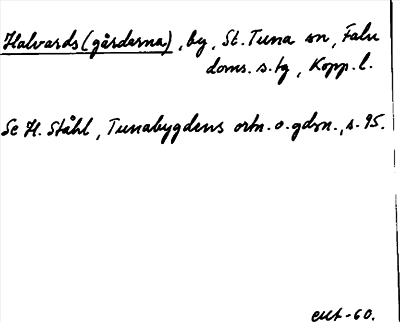 Halvards (gårdarna), by, St. Tuna sn, Falu
doms. s. tg, Kopp. l.
Se H. Ståhl, Tunabygdens ortn. o. gdsn., s. 95.
-60.